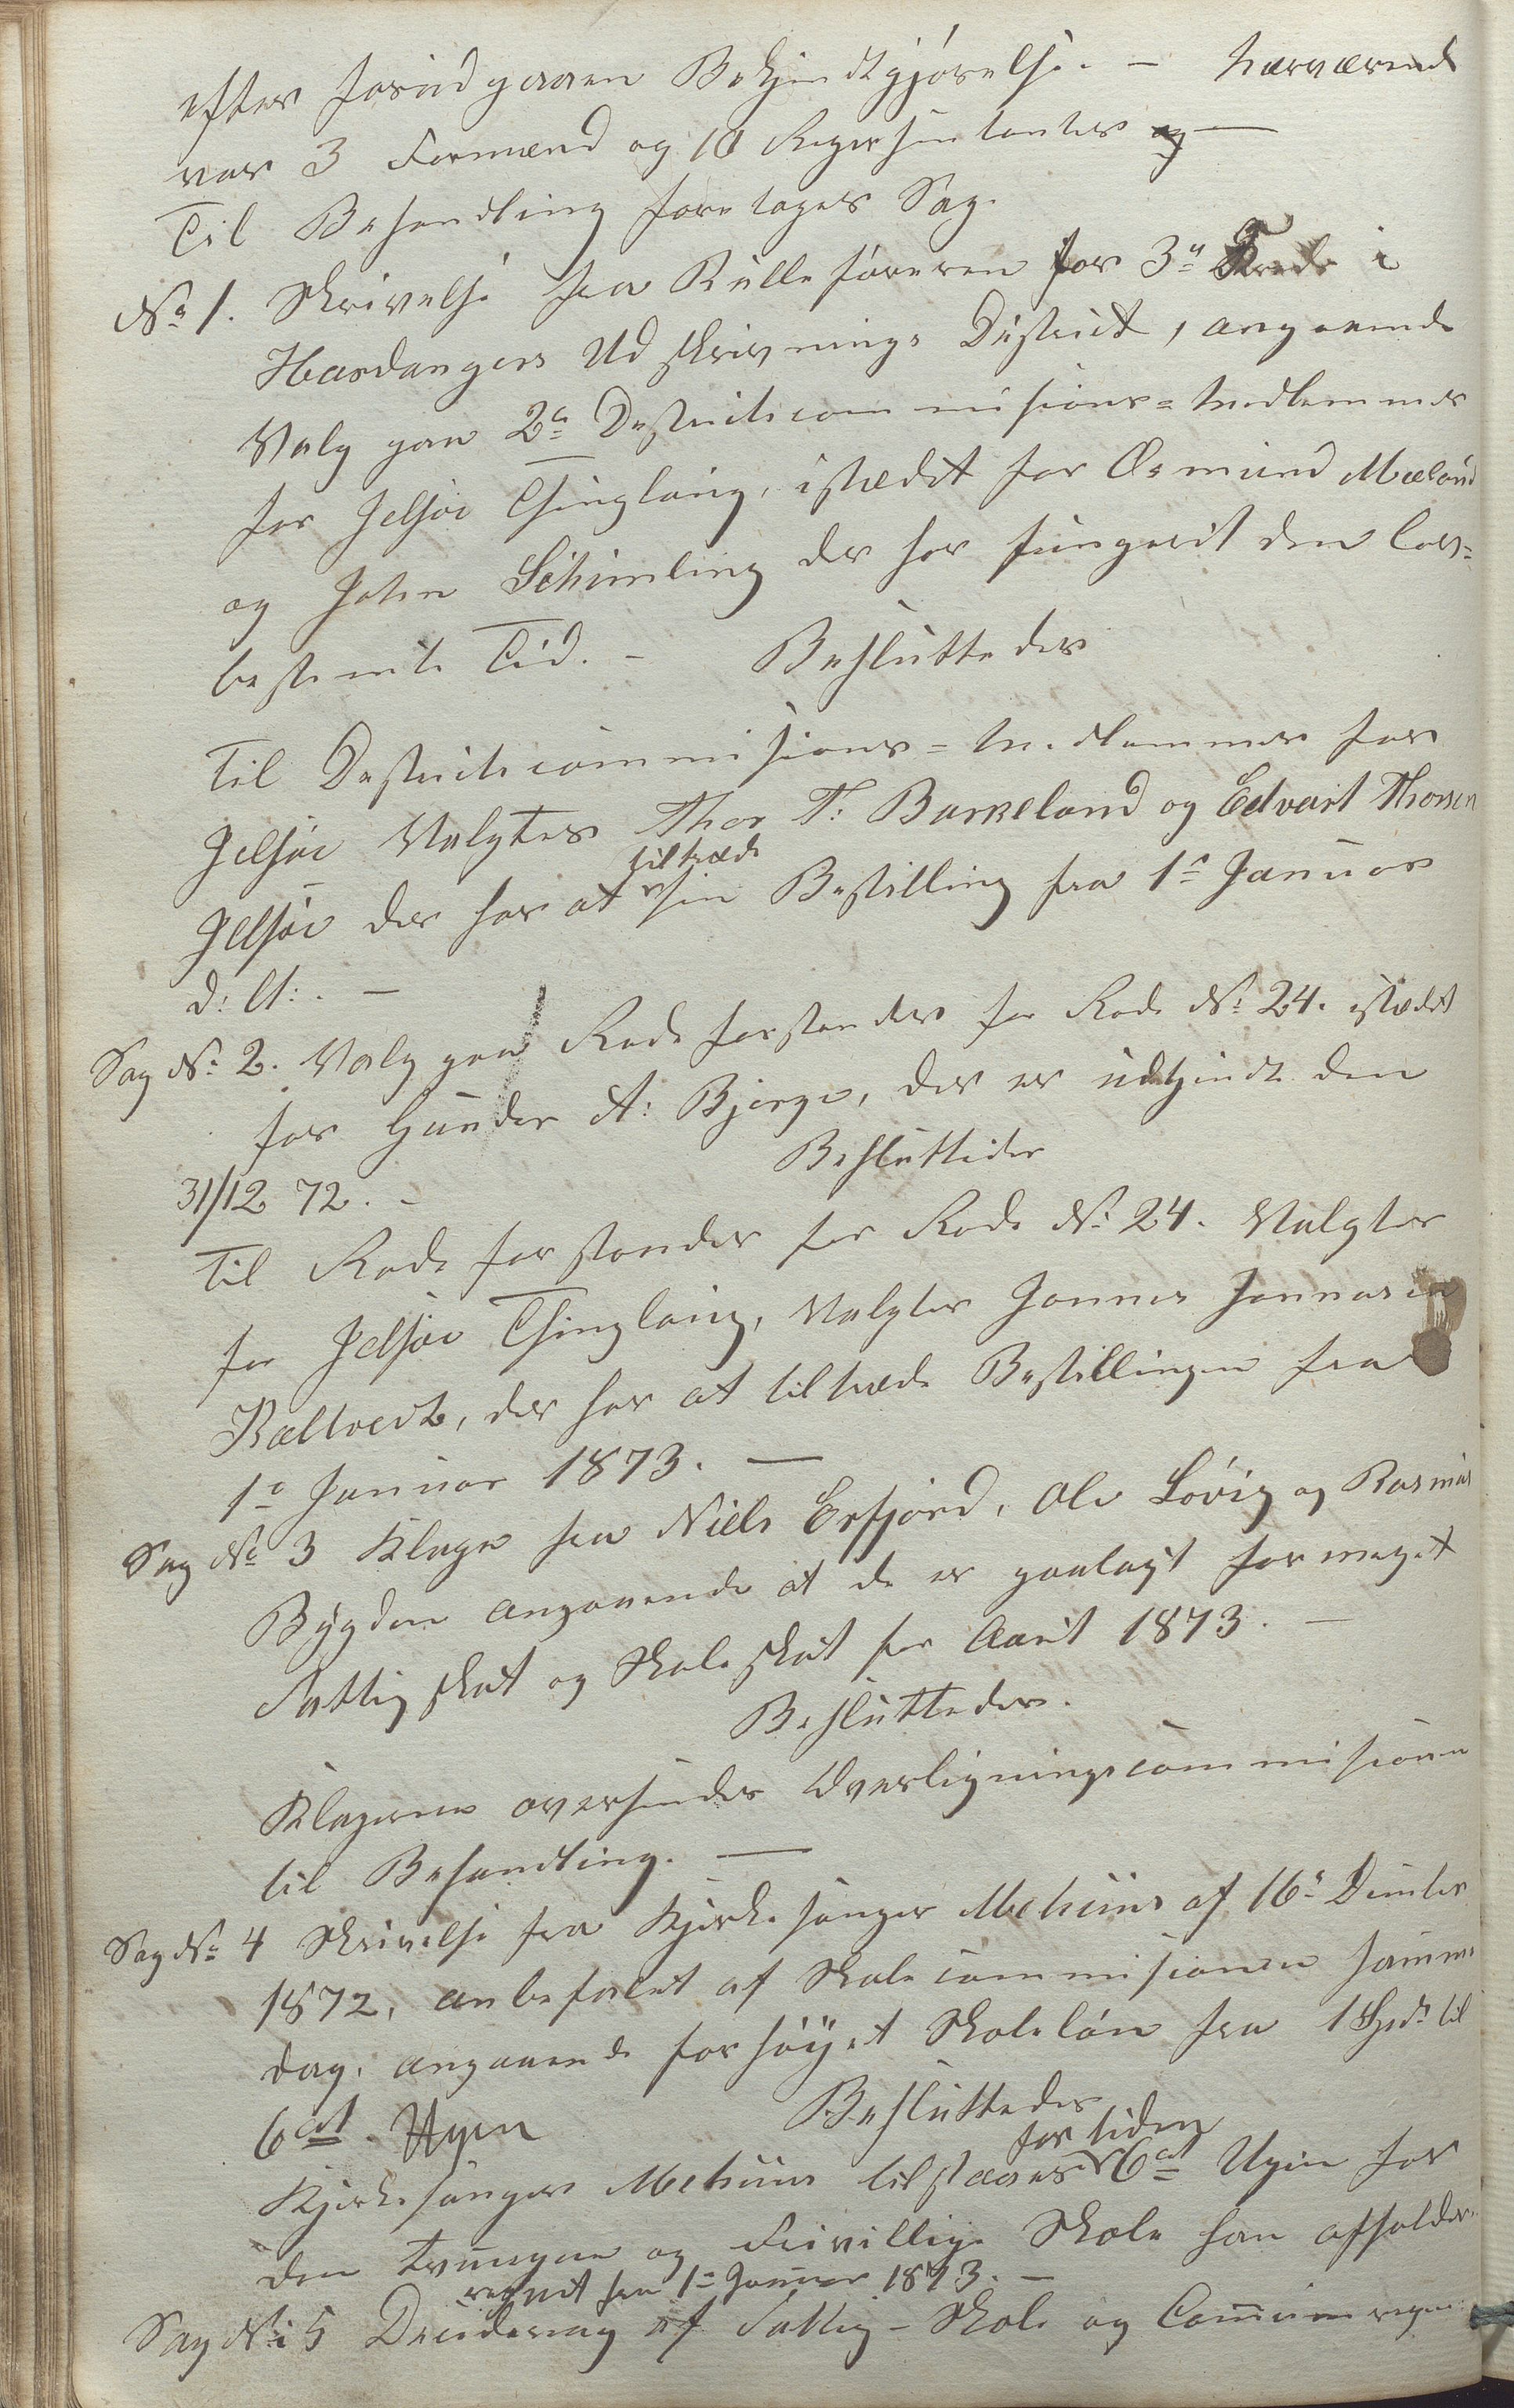 efter forudgaaen Bekjendtgjørelse. – Nærværende
var 3 Formænd og 10 Repræsentanter og —
Til Behandling foretages Sag.
No 1. Skrivelse fra Rulleføreren for 3die Kreds i
Hardangers Udskrivnings District, angaaende
Valg paa 2de Districtscommisions=Medlemmer
for Jelsøe Thinglaug, istædet for Osmund Mæland
og John Schimling der har fungerit den lov=
bestemte Tid. – Besluttedes
Til Districtscommisions=Medlemmer for
Jelsøe Valgtes Thor T: Barkeland og Edvart Thorsen
tiltræde
Jelsøe der har at sin Bestilling fra 1te Januar
d: A: . —
Sag No 2. Valg paa Rodeforstander for Rode No 24. istædet
for Gunder A: Bjerge, der er udtjendt den
31/12 72. – Besluttedes
Til Rodeforstander for Rode No 24. Valgtes
for Jelsøe Thinglaug, Valgtes Jonnes Jonnasen
Bæltvedt, der har at tiltræde Bestillingen fra
1te Januar 1873. —
Sag No 3 Klage fra Niels Erfjord, Ole Løvig og Rasmus
Bygden angaaende at de er paalagt formeget
Fattigskat og Skoleskat for Aarit 1873. —
Besluttedes.
Klagerne oversendes Overligningscommisionen
til Behandling. —
Sag No 4 Skrivelse fra Kirkesanger Mehuus af 16de Decmbr
1872, anbefalet af Skolecommisionen samme
dag, angaaende forhøyet Skoleløn fra 1 Spd. til
6 ort. Ugen Besluttedes
for tiden
Kirkesanger Mehuus tilstaaes 6 ort Ugen for
den tvungne og Frivillige Skole han afholder
regnet fra 1te Januar 1873. –
Sag No 5 Decidering af Fattig- Skole og Communeregn